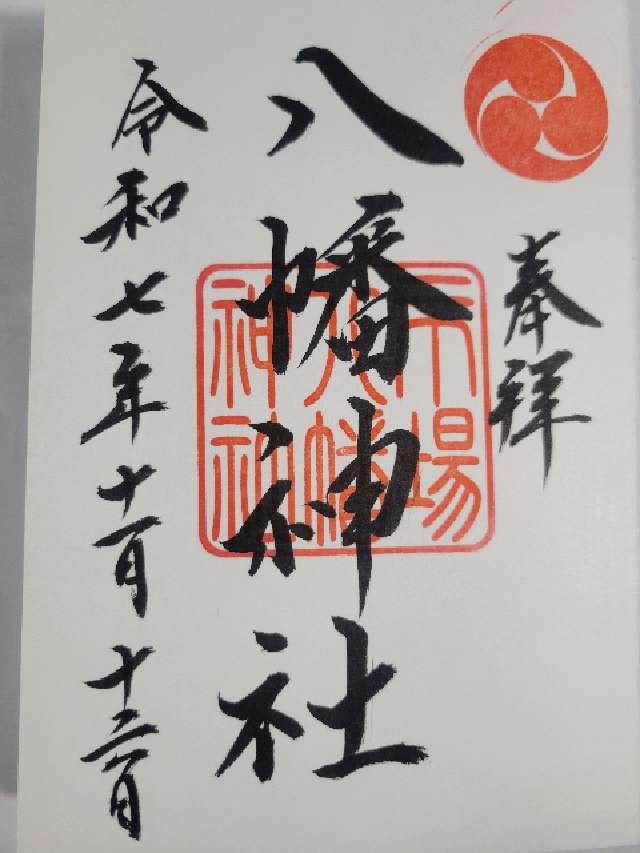 奉拝
八幡神社
場
八幡
神社
令和七年十一月十三日